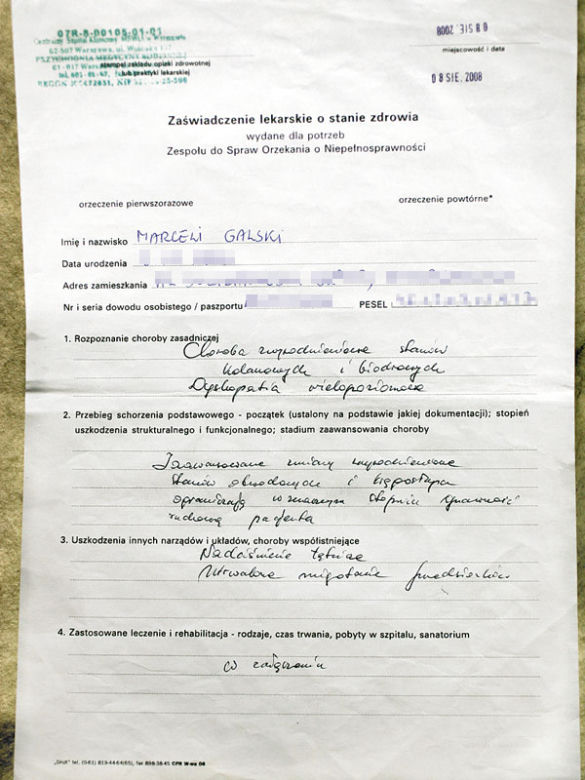 07R-8-00105-01-01
02-507 Warszawa, ul.
stempel zakładu opieki zdrowotnej
lub praktyki lekarskiej
08 SIE. 2008
miejscowość i data
08 SIE. 2008
Zaświadczenie lekarskie o stanie zdrowia
wydane dla potrzeb
Zespołu do Spraw Orzekania o Niepełnosprawności
orzeczenie pierwszorazowe
orzeczenie powtórne*
Imię i nazwisko MARCELI GALSKI
Data urodzenia
Adres zamieszkania
Nr i seria dowodu osobistego / paszportu PESEL
1. Rozpoznanie choroby zasadniczej
Choroba zwyrodnieniowa stawów
kolanowych i biodrowych
Dyskopatia wielopoziomowa
2. Przebieg schorzenia podstawowego - początek (ustalony na podstawie jakiej dokumentacji); stopień
uszkodzenia strukturalnego i funkcjonalnego; stadium zaawansowania choroby
Zaawansowane zmiany zwyrodnieniowe
stawów obwodowych i kręgosłupa
ograniczają w znacznym stopniu sprawność
ruchową pacjenta
3. Uszkodzenia innych narządów i układów, choroby współistniejące
Nadciśnienie tętnicze
Utrwalone migotanie przedsionków
4. Zastosowane leczenie i rehabilitacja - rodzaje, czas trwania, pobyty w szpitalu, sanatorium
w załączeniu